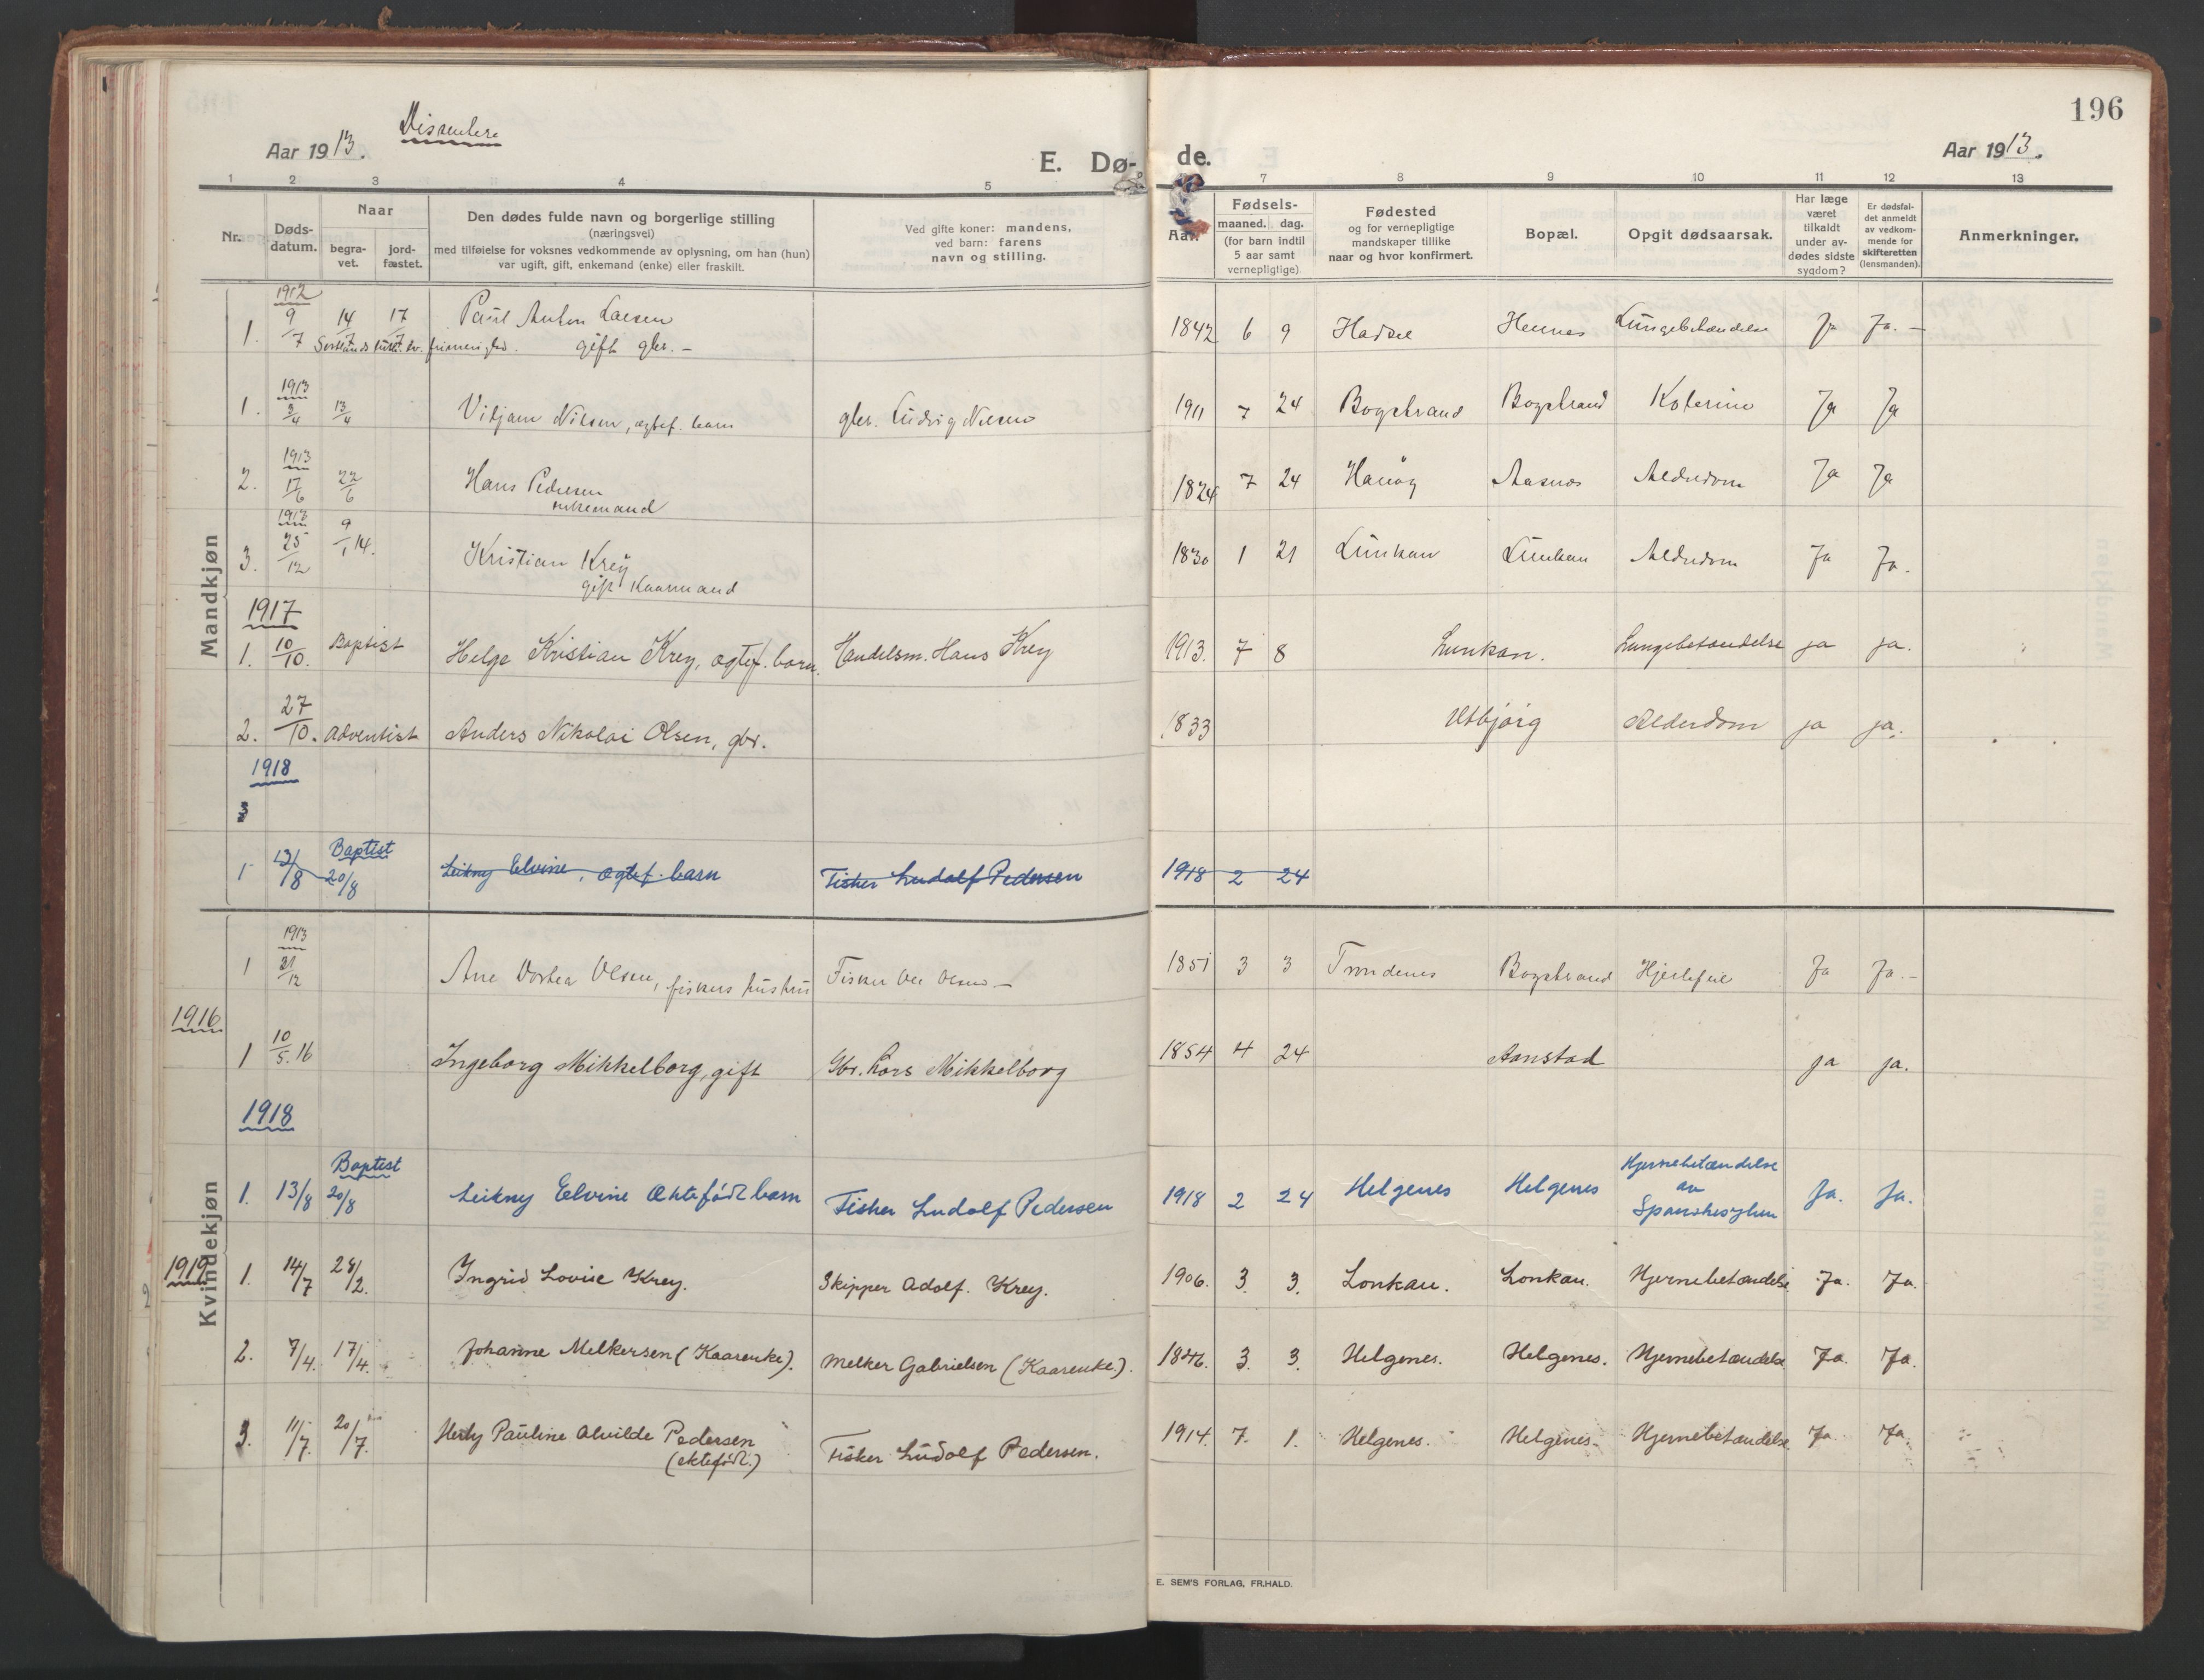 196
Dissentere
Aar 1913.
E. Dø- de.
Aar 1913.
1 2 3 4 5 7 8 9 10 11 12 13
Nr.
Døds-
datum.
Naar
begra-
vet.
jord-
fæstet.
Den dødes fulde navn og borgerlige stilling
(næringsvei)
med tilføielse for voksnes vedkommende av oplysning, om han (hun)
var ugift, gift, enkemand (enke) eller fraskilt.
Ved gifte koner: mandens,
ved barn: farens
navn og stilling.
Aar.
Fødsels-
maaned. dag.
(for barn indtil
5 aar samt
vernepligtige)
Fødested
og for vernepligtige
mandskaper tillike
naar og hvor konfirmert.
Bopæl.
Opgit dødsaarsak.
Har læge
været
tilkaldt
under av-
dødes sidste
sygdom?
Er dødsfal-
det anmeldt
av vedkom-
mende for
skifteretten
(lensmanden).
Anmerkninger.
Mandkjøn
1912
1. 9/7 14/7 17/7 Paul Anton Larsen 1842 6 9 Hadsel Hennes Lungebetændelse Ja Ja. -
gift gbr. -
1913
1. 3/4 13/4 Viljam Nilsen, ægtef. barn gbr. Ludvig Nilsen 1911 7 24 Bogstrand Bogstrand Kolerine Ja Ja
1913
2. 17/6 22/6 Hans Pedersen 1824 7 24 Hanøy Aasnes Alderdom Ja Ja
enkemand
1913
3. 25/12 9/1 14. Kristian Krey 1830 1 21 Lunkan Lunkan Alderdom Ja Ja.
gift Kaarmand
1917
1. 10/10. Baptist Helge Kristian Krey, ægtef. barn. Handelsm. Hans Krey 1913. 7 8 Lunkan. Lungebetændelse ja ja.
2. 27/10. Adventist Anders Nikolai Olsen, gbr. 1833 Utbjörg Alderdom ja ja.
1918
3
Baptist
1 13/8 20/8 Leikny Elvine, ægtef. barn Fisker Ludolf Pedersen 1918 2 24
Kvindekjøn
1913
1 31/12 Ane Dortea Olsen, fiskers hustru Fisker Ole Olsen - 1851 3 3 Trondenes Bogstrand Hjertefeil Ja Ja. -
1916
1 10/5. 16 Ingeborg Mikkelborg, gift Gbr. Lars Mikkelborg 1854 4 24 Aanstad ja ja.
1918
Baptist
1. 13/8 20/8 Leikny Elvine Ektefödt barn Fisker Ludolf Pedersen 1918 2 24 Helgenes Helgenes Hjernebetændelse
av
Spanskesyken Ja. Ja.
1919 1. 14/7 28/2. Ingrid Lovise Krey. Skipper Adolf. Krey. 1906. 3. 3. Lonkan. Lonkan. Hjernebetændelse Ja. Ja.
2. 7/4. 17/4. Johanne Melkersen (Kaarenke). Melker Gabrielsen (Kaarenke). 1846. 3. 3. Helgenes. Helgenes. Hjernebetændelse Ja. Ja.
3. 11/7. 20/7. Herly Pauline Alvilde Pedersen Fisker Ludolf Pedersen. 1914. 7. 1. Helgenes. Helgenes. Hjernebetændelse Ja. Ja.
(ektefödt.)
E. SEM'S FORLAG, FR.HALD.